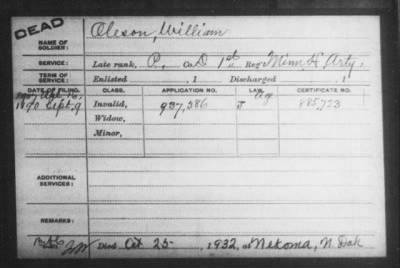 DEAD
NAME OF SOLDIER: Oleson, William
SERVICE: Late rank, P, Co. D 1st Reg't Minn H. Arty.
TERM OF SERVICE: Enlisted , 1 Discharged , 1
DATE OF FILING. CLASS. APPLICATION NO. LAW. CERTIFICATE NO.
1890 Sept. 9 Invalid, 937,386 885,723
Widow,
Minor,
ADDITIONAL SERVICES:
REMARKS:
Died Oct 25 - , 1932, at Nekoma, N. Dak